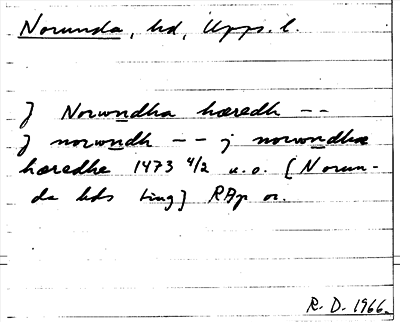 Norunda, hd, Upps. l.
J Norwndha hæredh --
J norwndh -- j norwndha
hæredhe 1473 4/2 u.o. [Norun-
da hds ting] RAp or.
R. D. 1966.